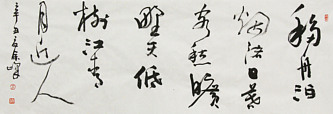 移舟泊
烟渚日暮
客愁曠
野天低
树江清
月近人
辛丑